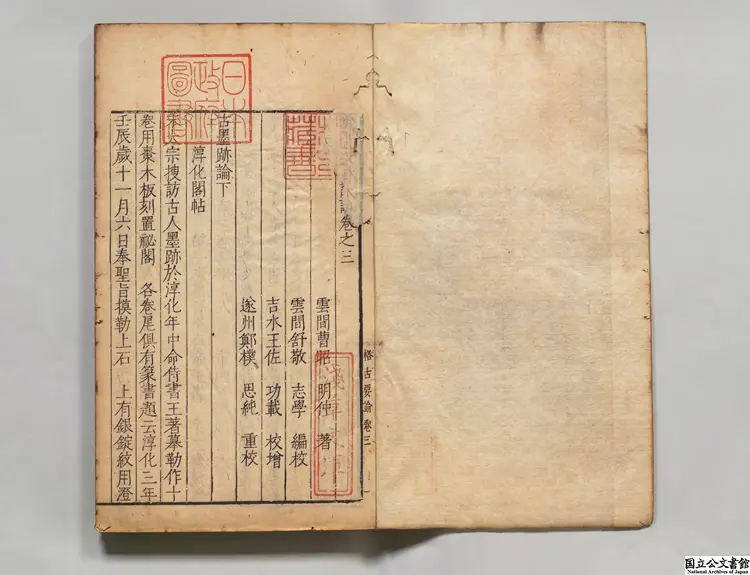 論卷之三
雲間曹昭 明仲 著
雲間舒敬 志學 編校
吉水王佐 功載 校增
遂州鄭樸 思純 重校
古墨跡論下
淳化閣帖
宋太宗搜訪古人墨跡於淳化年中命侍書王著摹勒作十
卷用棗木板刻置祕閣 各卷尾俱有篆書題云淳化三年
壬辰歲十一月六日奉聖旨摸勒上石 上有銀錠紋用澄
格古要論 卷三
日本
政府
圖書
国立公文書館
National Archives of Japan